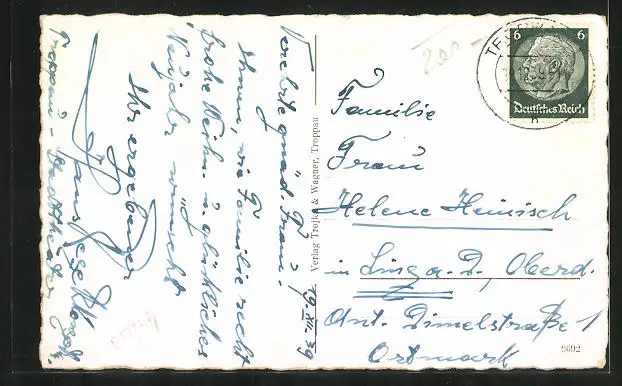 Verehrte gnäd. Frau!
Ihnen, wie Familie recht
frohe Weihn. u. glückliches
Neujahr wünscht
Ihr ergebener
Hans
Troppau - Stadttheater
19.XII.39
Verlag Trojka & Wagner, Troppau
6 6
Deutsches Reich
Familie
Frau
Helene Heinisch
in Linz a. D., Oberd.
Ant. Dimelstraße 1
Ostmark
9692